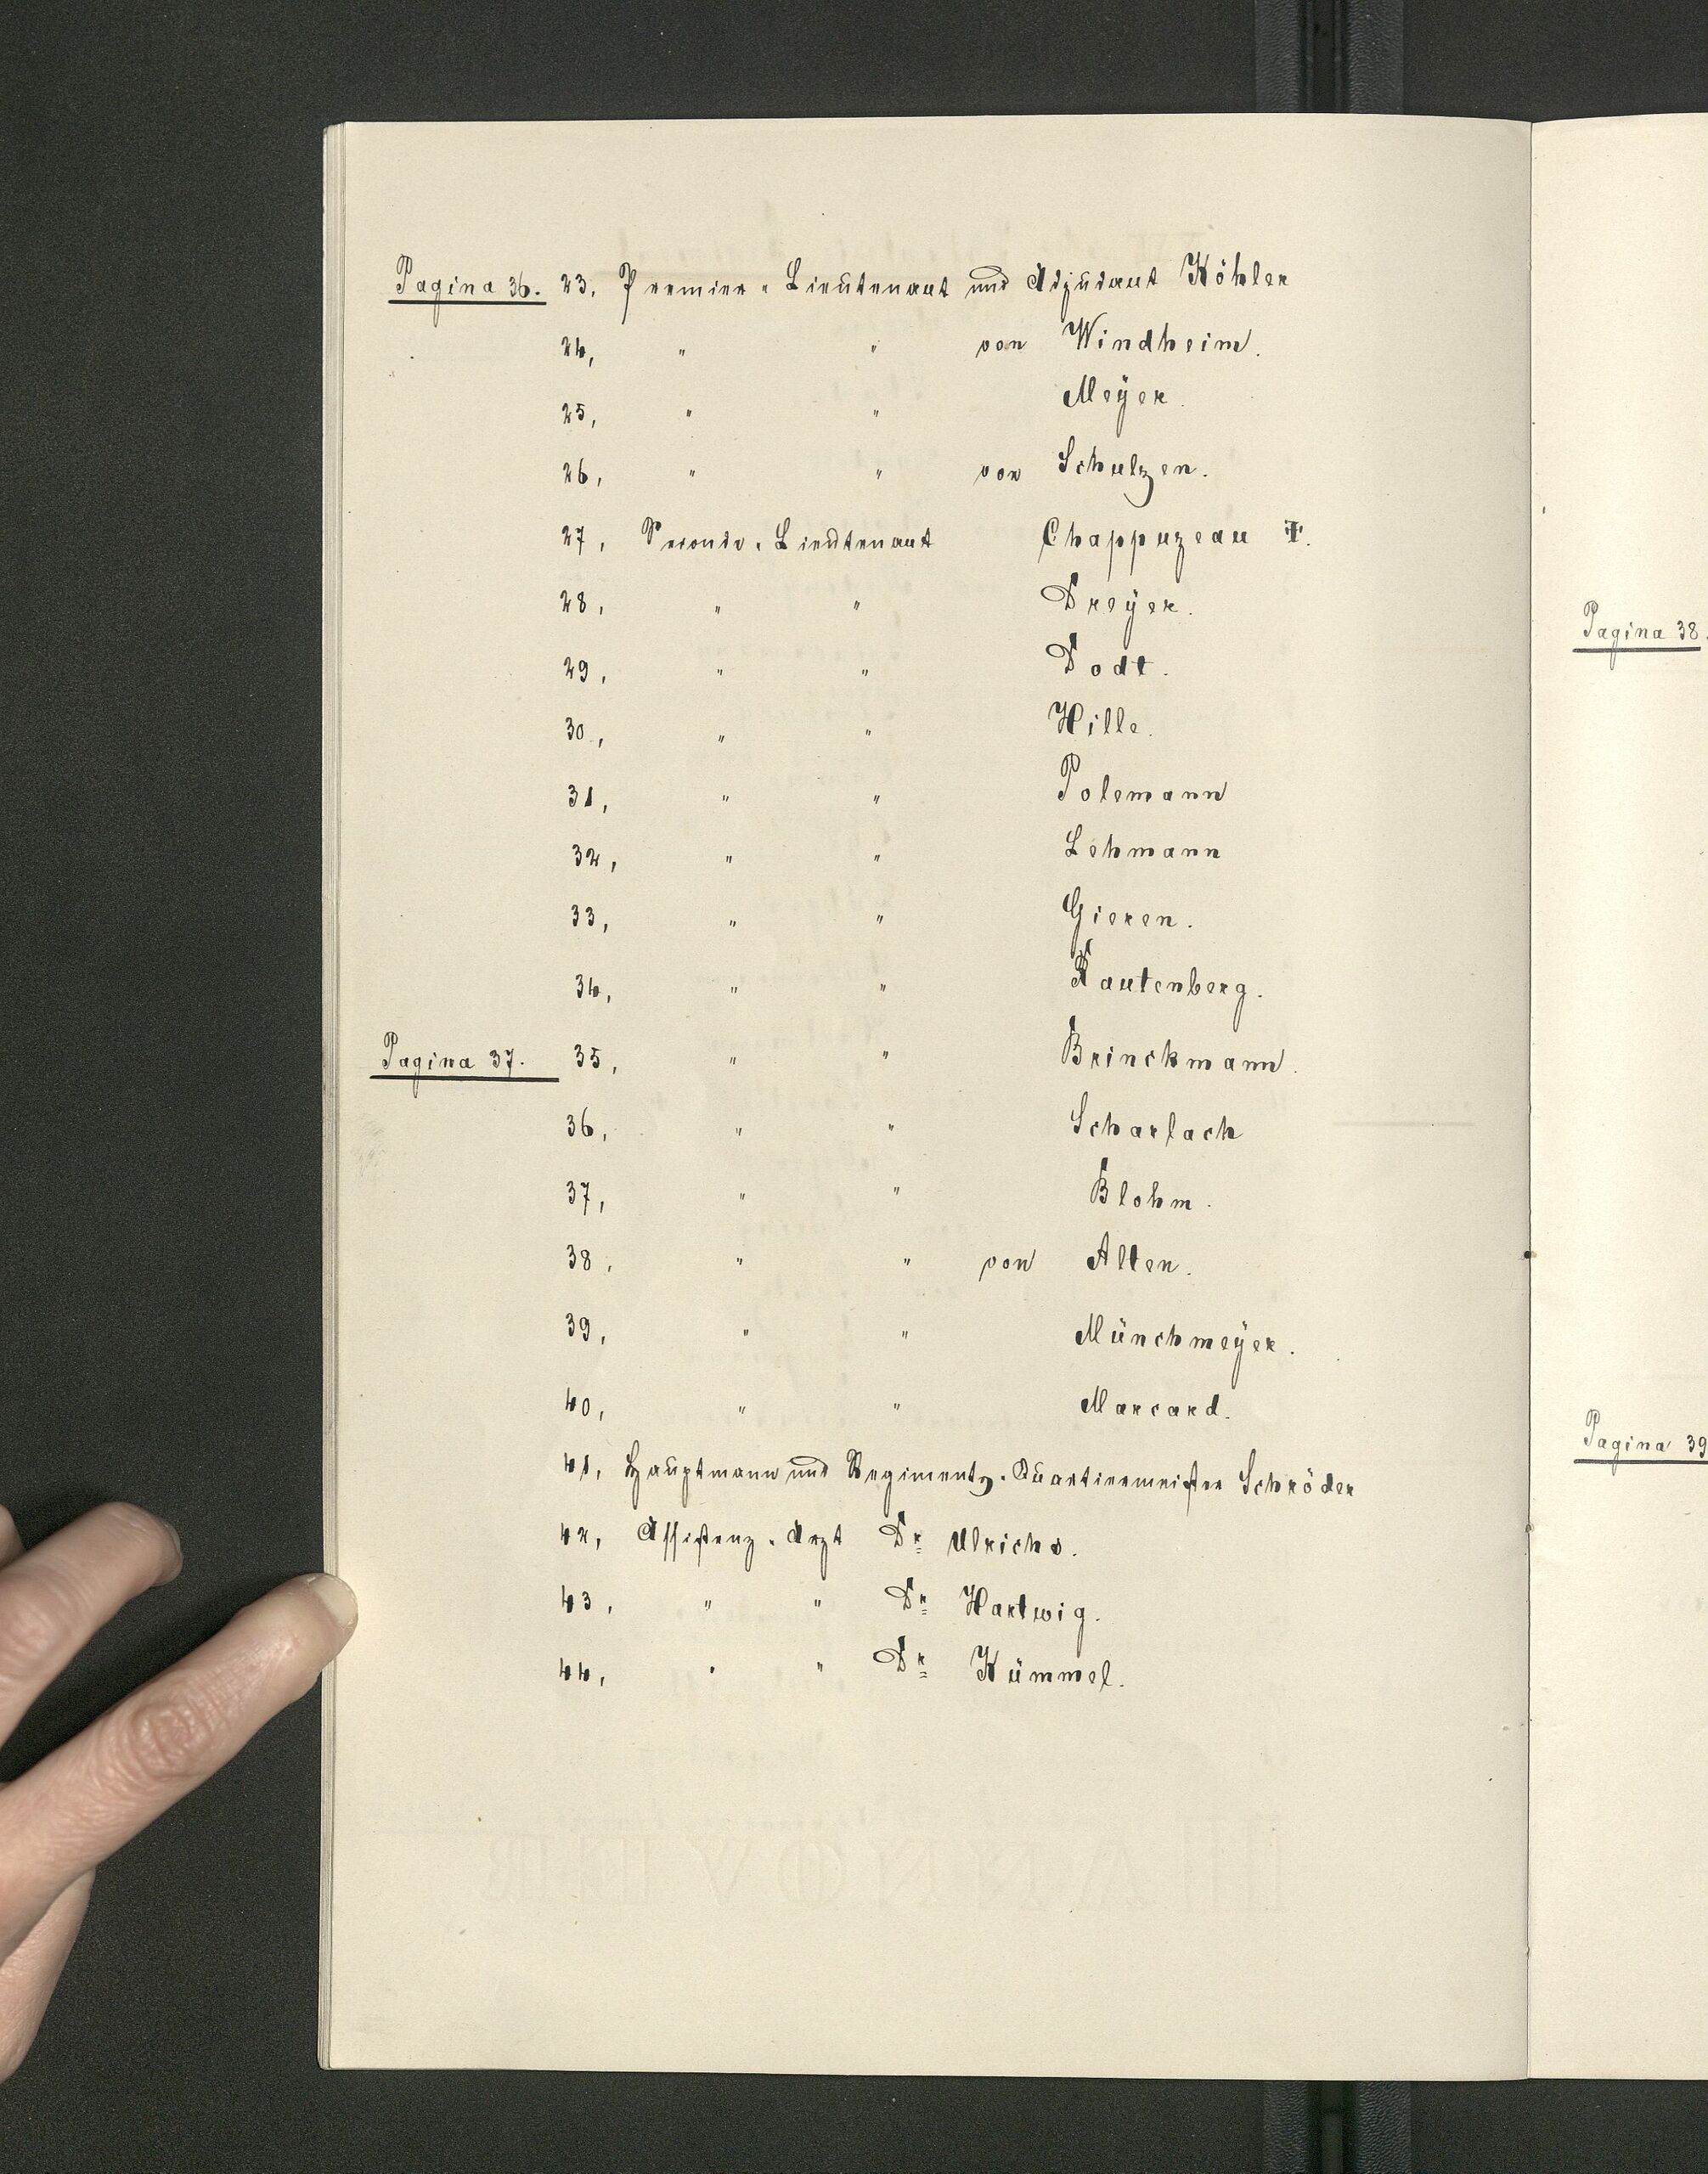 Pagina 36. 23, Premier-Lieutenant und Adjudant Köhler
24, " " von Windheim.
25, " " Meÿer.
26, " " von Schulzen.
27, Seconde-Lieutenant Chappuzeau I.
28, " " Dreÿer.
29, " " Dodt.
30, " " Hille.
31, " " Polemann
32, " " Lehmann
33, " " Gieren.
34, " " Rautenberg.
Pagina 37. 35, " " Brinckmann.
36, " " Scharlach
37, " " Blohm.
38, " " von Alten.
39, " " Münchmeÿer.
40, " " Marcard.
41, Hauptmann und Regiments-Quartiermeister Schröder
42, Assistenz-Arzt Dr Ulrichs.
43, " " Dr Hartwig.
44, " " Dr Kümmel.
Pagina 38.
Pagina 39